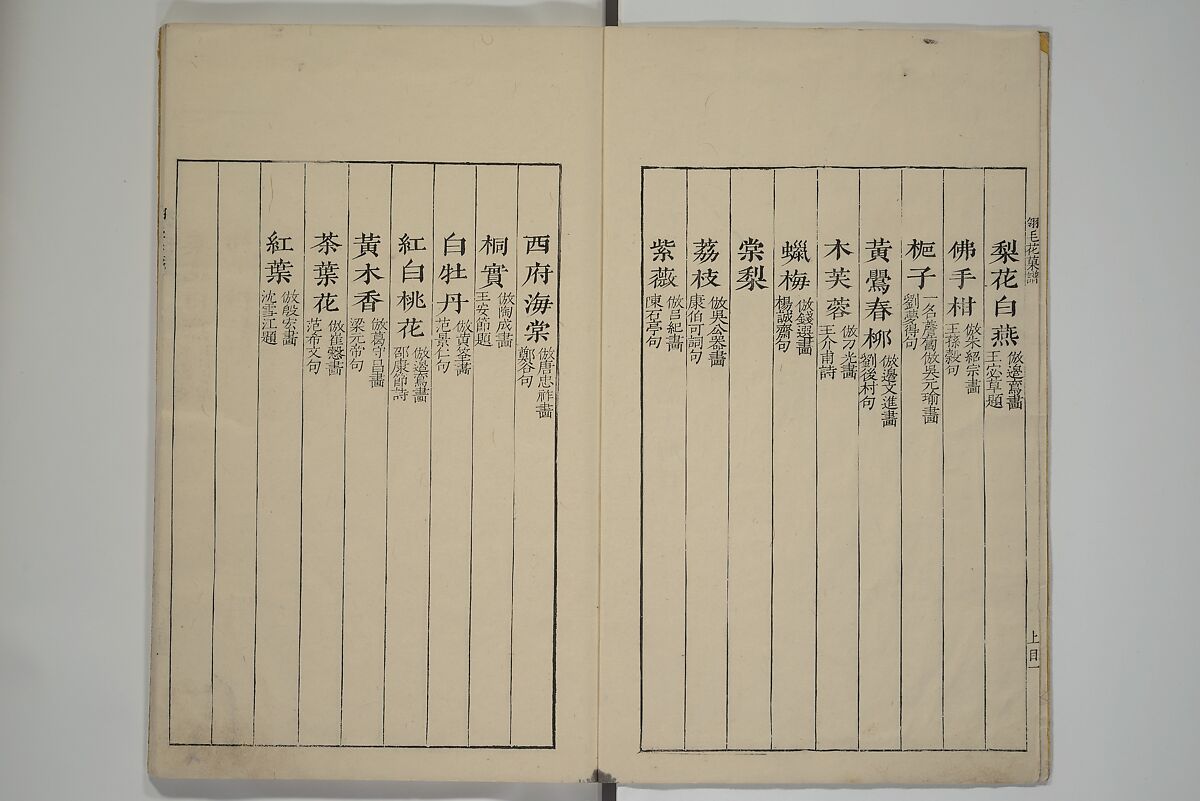 翎毛花菓譜
上目一
梨花白燕 倣邊鸞畵 王宓草題
佛手柑 倣朱紹宗畵 王孫穀句
梔子 一名薝蔔倣吳元瑜畵 劉夢得句
黃鸎春柳 倣邊文進畵 劉後村句
木芙蓉 倣刁光畵 王介甫詩
蠟梅 倣錢選畵 楊誠齋句
棠梨
荔枝 倣吳公器畵 康伯可詞句
紫薇 倣呂紀畵 陳石亭句
西府海棠 倣唐忠祚畵 鄭谷句
桐實 倣陶成畵 王安節題
白牡丹 倣黃筌畵 范景仁句
紅白桃花 倣邊鸞畵 邵康節詩
黃木香 倣葛守昌畵 梁元帝句
茶葉花 倣崔慤畵 范希文句
紅葉 倣殷宏畵 沈雪江題